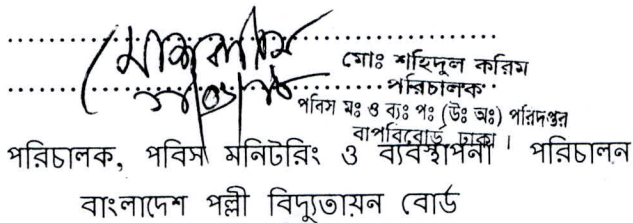 মোঃ শহিদুল করিম
পরিচালক
পবিস মঃ ও ব্যঃ পঃ (উঃ অঃ) পরিদপ্তর
বাপবিবোর্ড, ঢাকা ।
পরিচালক, পবিস মনিটরিং ও ব্যবস্থাপনা পরিচালন
বাংলাদেশ পল্লী বিদ্যুতায়ন বোর্ড